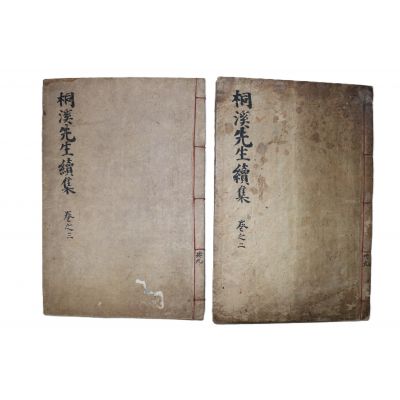 桐溪先生續集
卷之三
桐溪先生續集
卷之二